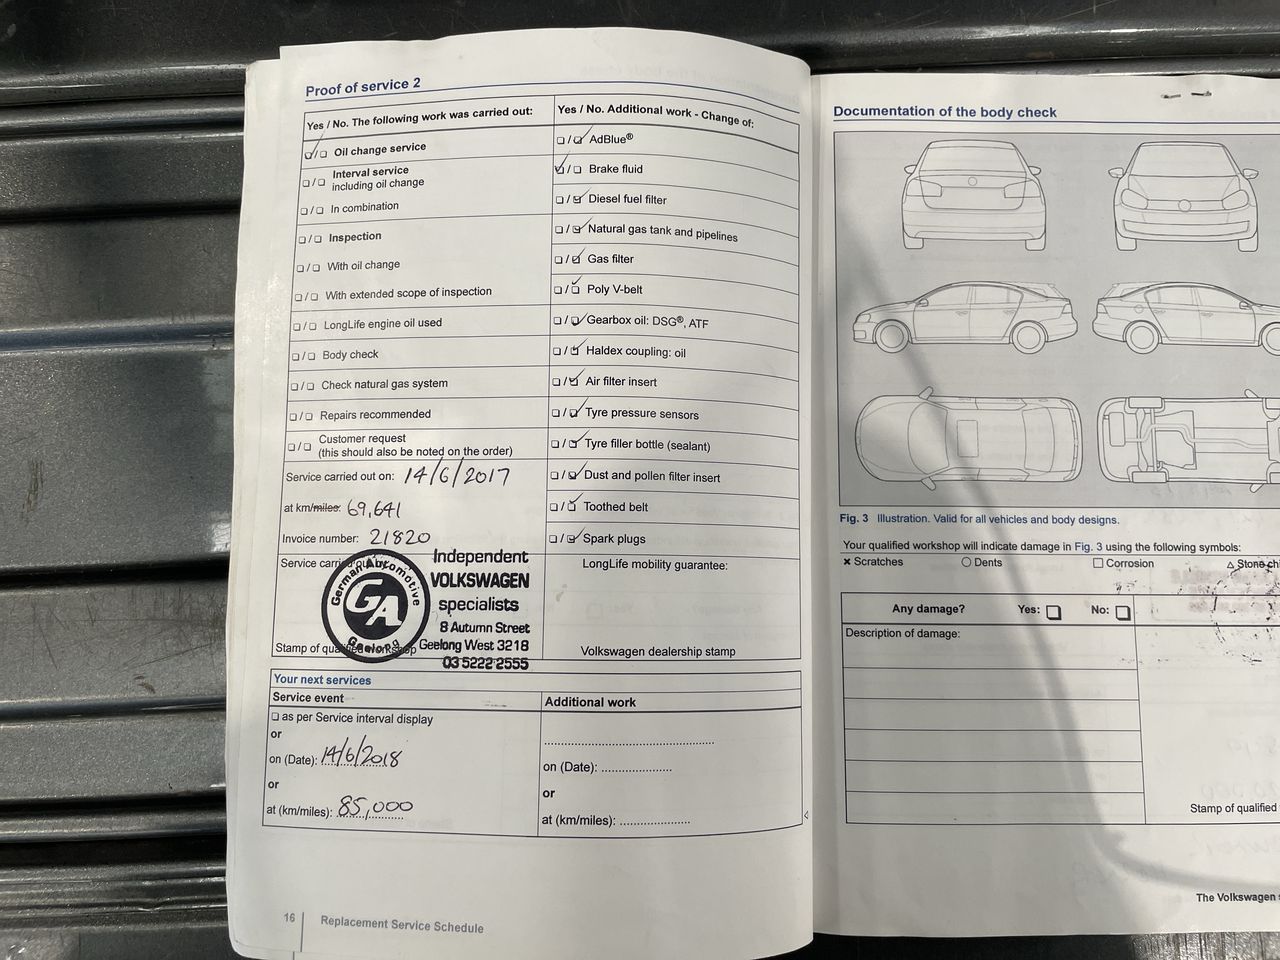 Proof of service 2
Yes / No. The following work was carried out:
Oil change service
Interval service
including oil change
In combination
Inspection
With oil change
With extended scope of inspection
LongLife engine oil used
Body check
Check natural gas system
Repairs recommended
Customer request
(this should also be noted on the order)
Service carried out on: 14/6/2017
at km/miles: 69,641
Invoice number: 21820
Service carried out by:
German Automotive
GA
Geelong
Independent
VOLKSWAGEN
specialists
8 Autumn Street
Geelong West 3218
03 5222 2555
Stamp of qualified workshop
Yes / No. Additional work - Change of:
AdBlue®
Brake fluid
Diesel fuel filter
Natural gas tank and pipelines
Gas filter
Poly V-belt
Gearbox oil: DSG®, ATF
Haldex coupling: oil
Air filter insert
Tyre pressure sensors
Tyre filler bottle (sealant)
Dust and pollen filter insert
Toothed belt
Spark plugs
LongLife mobility guarantee:
Volkswagen dealership stamp
Your next services
Service event
as per Service interval display
or
on (Date): 14/6/2018
or
at (km/miles): 85,000
Additional work
on (Date):
or
at (km/miles):
16 Replacement Service Schedule
Documentation of the body check
Fig. 3 Illustration. Valid for all vehicles and body designs.
Your qualified workshop will indicate damage in Fig. 3 using the following symbols:
Scratches Dents Corrosion Stone chi
Any damage? Yes: No:
Description of damage:
Stamp of qualified
The Volkswagen